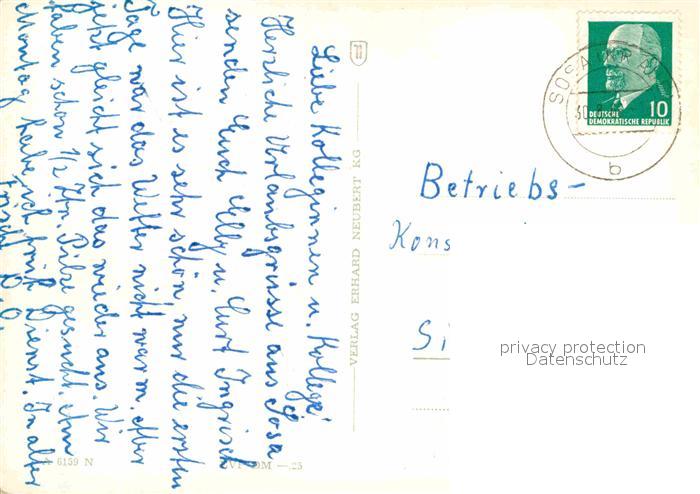 Liebe Kolleginnen u. Kollege!
Herzliche Urlaubsgrüsse aus Sosa
senden Euch Elly u. Curt Ingrisch
Hier ist es sehr schön nur die ersten
Tage war das Wetter nicht warm. Aber
jetzt gleicht sich das wieder aus. Wir
haben schon 1/2 Ztn. Pilze gesucht. Am
Montag habe ich früh Dienst. In alter
Frische
VERLAG ERHARD NEUBERT KG
6159 N
DM —.25
SOSA
b
10
DEUTSCHE
DEMOKRATISCHE REPUBLIK
Betriebs-
Kons
Si
privacy protection
Datenschutz